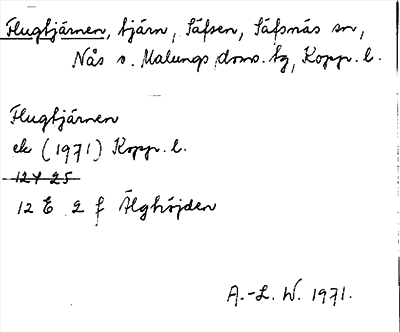 Flugtjärnen, tjärn, Säfsen, Säfsnäs sn,
Nås o. Malungs doms. tg, Kopp. l.
Flugtjärnen
ek (1971) Kopp. l.
12 Y 25
12 E 2 f Älghöjden
A.-L. W. 1971.